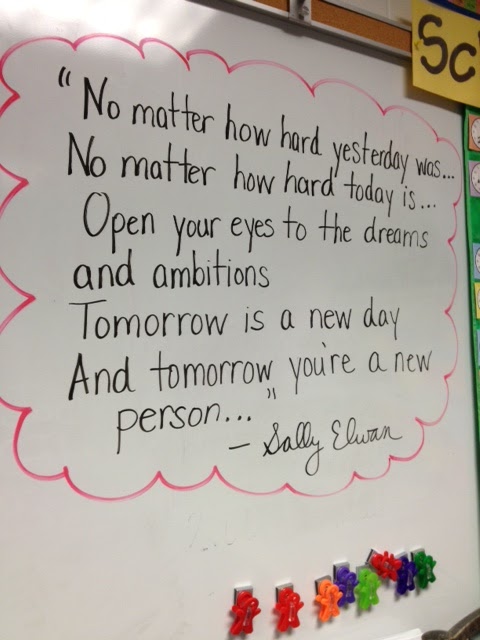 Sc
"No matter how hard yesterday was...
No matter how hard today is...
Open your eyes to the dreams
and ambitions
Tomorrow is a new day
And tomorrow you're a new
person..."
- Sally Elwan